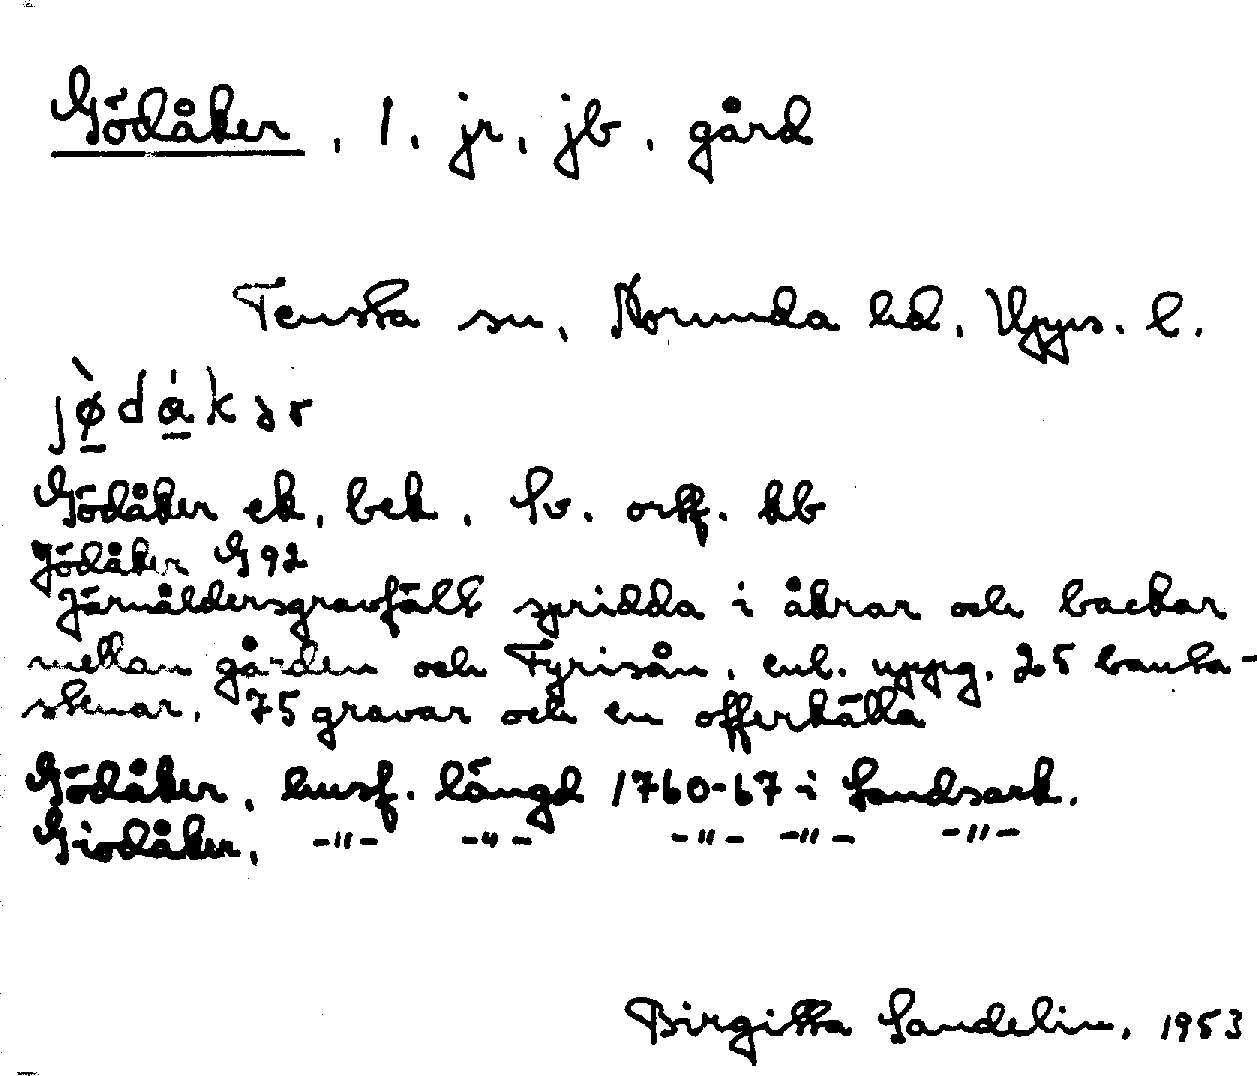 Gödåker, 1, jr, jb, gård
Tensta sn, Norunda hd, Upps. l.
jø̀dåkər
Gödåker ek, bek, Sv. ortf. kb
Jödåker G 92
Järnåldersgravfält spridda i åkrar och backar
mellan gården och Fyrisån, enl. uppg. 25 bauta-
stenar, 75 gravar och en offerkälla
Gödåker, husf. längd 1760-67 i Landsark.
Giödåker, -"- -"- -"- -"- -"-
Birgitta Sandelin, 1953